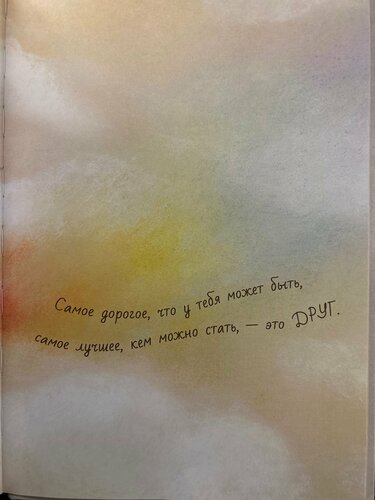 Самое дорогое, что у тебя может быть,
самое лучшее, кем можно стать, — это ДРУГ.